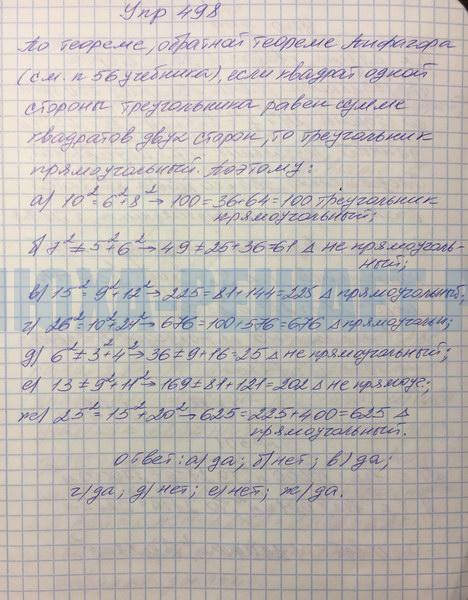 Упр 498
По теореме, обратной теореме Пифагора
(см. п 56 учебника), если квадрат одной
стороны треугольника равен сумме
квадратов двух сторон, то треугольник
прямоугольный. Поэтому:
а) 10²=6²+8² → 100=36+64=100 треугольник
прямоугольный;
б) 7²≠5²+6² → 49≠25+36=61 Δ не прямоуголь-
ный;
в) 15²=9²+12² → 225=81+144=225 Δ прямоугольный;
г) 26²=10²+24² → 676=100+576=676 Δ прямоугольн;
д) 6²≠3²+4² → 36≠9+16=25 Δ не прямоугольный;
е) 13≠9²+11² → 169≠81+121=202 Δ не прямоуг;
ж) 25²=15²+20² → 625=225+400=625 Δ
прямоугольный.
Ответ: а) да; б) нет; в) да;
г) да; д) нет; е) нет; ж) да.